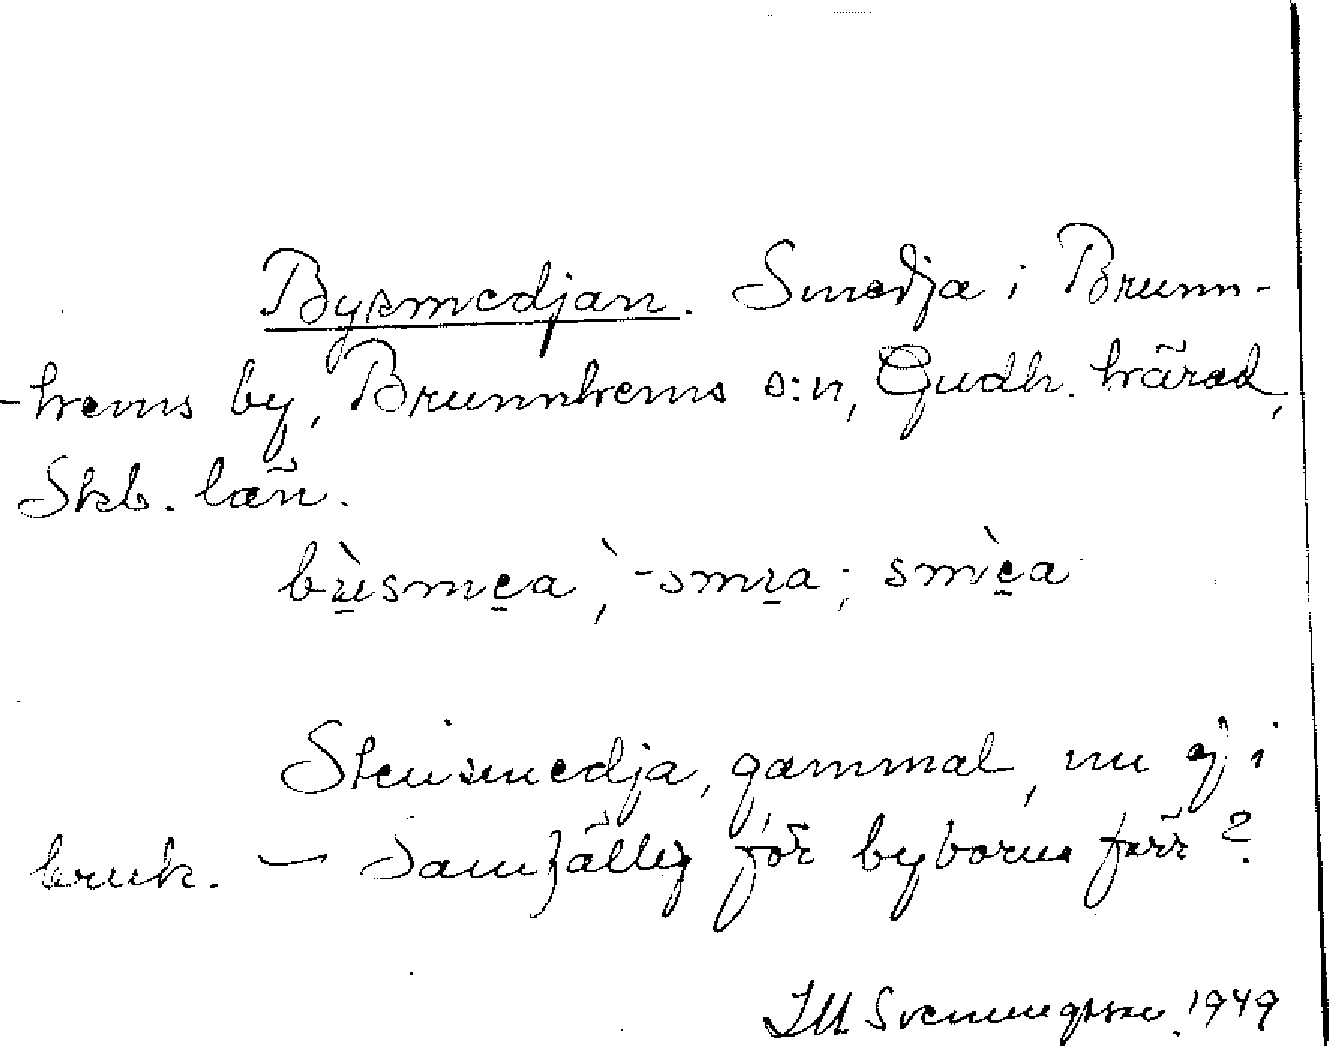 Bysmedjan. Smedja i Brunn-
-hems by, Brunnhems s:n, Gudh. härad,
Skb. län.
bỳsmea, -smɪa; smèa
Stensmedja, gammal, nu ej i
bruk. — Samfällig för byborna förr?
I M Svenungsson 1949